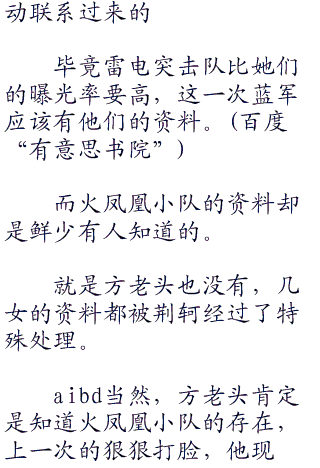 动联系过来的
毕竟雷电突击队比她们
的曝光率要高，这一次蓝军
应该有他们的资料。(百度
“有意思书院”)
而火凤凰小队的资料却
是鲜少有人知道的。
就是方老头也没有，几
女的资料都被荆轲经过了特
殊处理。
aibd当然，方老头肯定
是知道火凤凰小队的存在，
上一次的狠狠打脸，他现